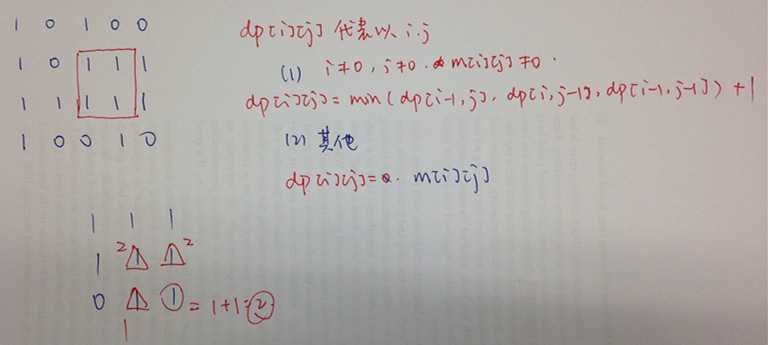 1 0 1 0 0
1 0 1 1 1
1 1 1 1 1
1 0 0 1 0
dp[i][j] 代表以 i.j
(1) i≠0, j≠0. m[i][j]≠0.
dp[i][j] = min(dp[i-1,j], dp[i,j-1], dp[i-1,j-1]) + 1
(2) 其他
dp[i][j]= m[i][j]
1 1 1
1 2 1 1 2
0 1 1 = 1+1=2
1